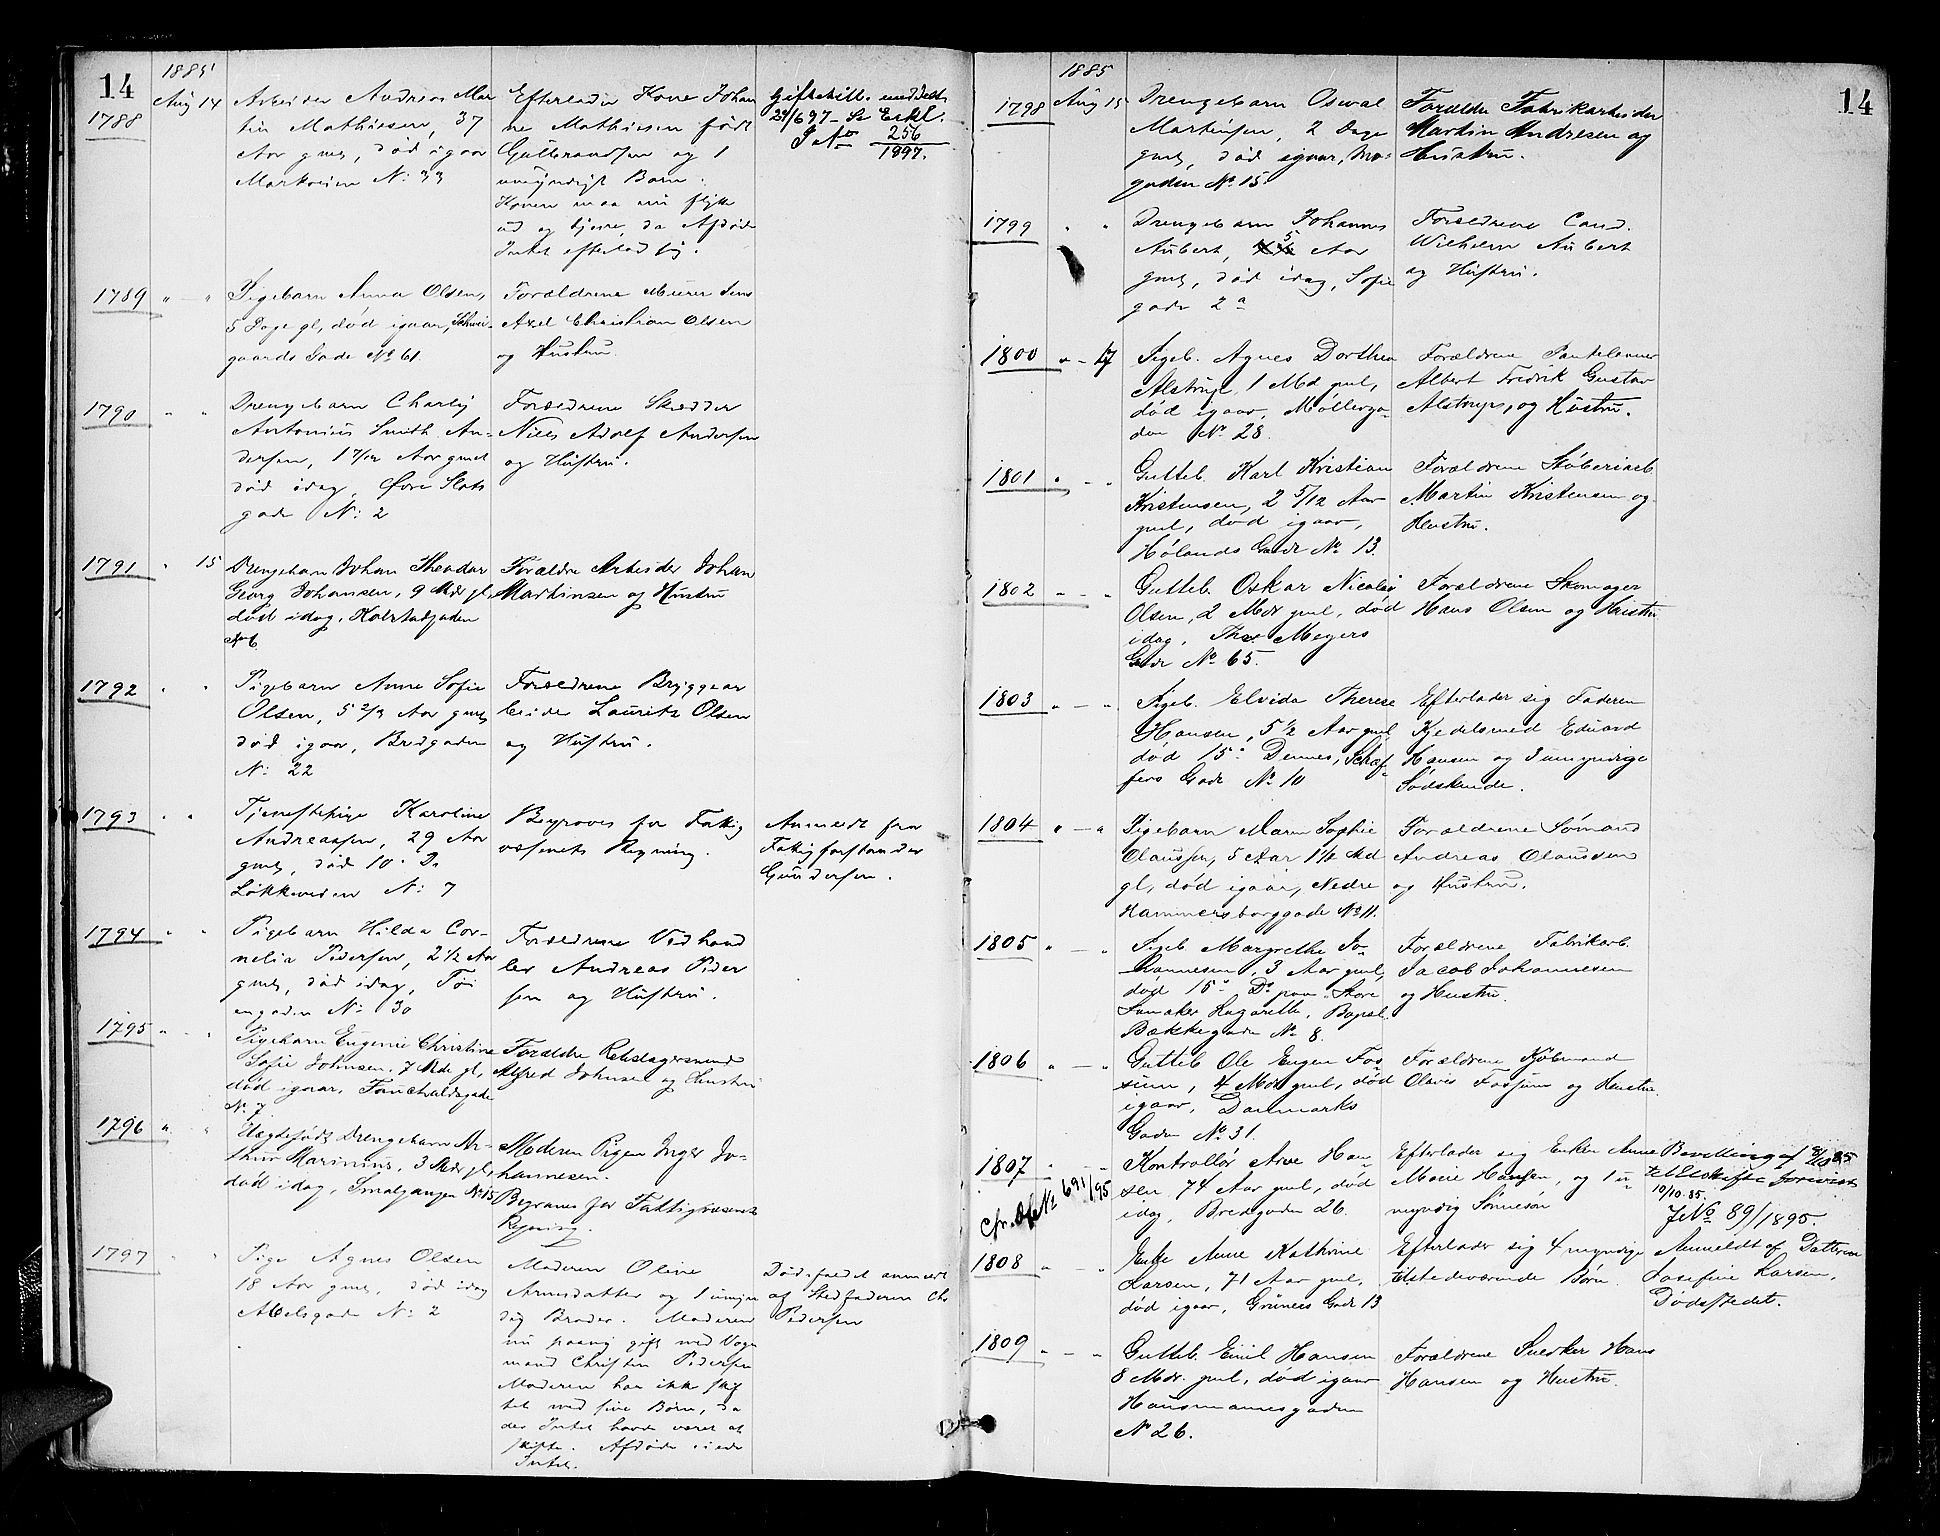 14
1885
1788
Aug 14
Arbeider Andreas Mar
tin Mathiesen, 37
Aar gml, død igaar
Markveien N: 33
Efterlader Kone Johan
ne Mathiesen født
Gulbrandsen og 1
umyndigt Barn.
Konen maa nu flytte
ud og tjene, da Afdøde
Intet efterlod sig.
Giftetill. meddelt
29/6 97 - Se Erkl.
J. No 256
1897.
1789 " - "
Pigebarn Anna Olsen,
5 Dage gl, død igaar, Schwei-
gaards Gade No 61.
Forældrene Murer Jens
Axel Christian Olsen
og Hustru.
1790 " "
Drengebarn Charly
Antonius Smith An-
dersen, 1 7/12 Aar gmel
død idag, Øvre Slots
gade N: 2
Forældrene Skrædder
Niels Adolf Andersen
og Hustru.
1791 " 15
Drengebarn Johan Theodor
Georg Johansen, 9 Mdr gl,
død idag, Kolstadgaden
No 6
Forældre Arbeider Johan
Martinsen og Hustru
1792 " "
Pigebarn Anne Sofie
Olsen, 5 2/3 Aar gmel
død igaar, Bredgaden
N: 22
Forældrene Bryggear
beider Lauritz Olsen
og Hustru.
1793 " "
Tjenestepige Karoline
Andreassen, 29 Aar
gmel, død 10. Ds
Løkkeveien N: 7
Begraves for Fattig
væsenets Regning.
Anmeldt fra
Fattigforstander
Gundersen.
1794 " "
Pigebarn Hilda Cor-
nelia Pedersen, 2 1/2 Aar
gmel, død idag, Tøi
engaden N: 30
Forældrene Vedhand
ler Andreas Peder
sen og Hustru.
1795 " "
Pigebarn Eugenie Christine
Sofie Johnsen, 7 Mdr gl,
død igaar,
No 7.
Forældre Rebslagersvend
Alfred Johnsen og Hustru
1796 " "
Uægtefødt Drengebarn Ar-
thur Marinius, 3 Mdr gl,
død idag, Smalgangen No 15
Moderen Pigen Inger Jo-
hannesen.
Begraves for Fattigvæsenets
Regning.
1797 " "
Pige Agnes Olsen
18 Aar gmel, død idag
Abelsgade N: 2
Moderen Oline
Arnesdatter og 1 umyn
dig Broder. Moderen
nu paany gift med Vogn
mand Christen Pedersen
Moderen har ikke skif
tet med sine Børn, da
der Intet havde været at
skifte. Afdøde eiede
Intet.
Dødsfaldet anmeldt
af Stedfaderen Chr
Pedersen
14
1885
1798 Aug 15
Drengebarn Osval
Martinsen, 2 Dage
gmel, død igaar,
gaden No 15
Forældre Fabrikarbeider
Martin Andresen og
Hustru.
1799 " "
Drengebarn Johannes
Aubert, 5 Aar
gmel, død idag, Sofie
gade 2 a
Forældrene Cand.
Wilhelm Aubert
og Hustru.
1800 " - 17
Pigeb. Agnes Dorthea
Alstrup 1 Md gml,
død igaar, Møllerga-
den No 28.
Forældrene Pantelaaner
Albert Fredrik Gustav
Alstrup, og Hustru.
1801 " - "
Gutteb. Karl Kristian
Kristensen, 2 5/12 Aar
gml, død igaar,
Hølands Gade No 13.
Forældrene Støberiarb
Martin Kristensen og
Hustru.
1802 " - "
Gutteb. Oskar Nicolay
Olsen, 2 Mdr gml, død
idag, Thv. Meyers
Gade No 65.
Forældrene Skomager
Hans Olsen og Hustru
1803 " - "
Pigeb. Elvida Therese
Hansen, 5 1/2 Aar gml
død 15de Dennes, Schæf-
fers Gade No 10
Efterlader sig Faderen
Kjedelsmed Eduard
Hansen og 3 umyndige
Sødskende.
1804 " - "
Pigebarn Maren Sophie
Olaussen, 5 Aar 1 1/2 Md
gl, død igaar, Nedre
Hammersborggade No 11.
Forældrene Sømand
Andreas Olaussen
og Hustru.
1805 " - "
Pigeb. Margrethe Jo-
hannesen, 3 Aar gml,
død 15de Ds paa Store
Lazareth,
Bækkegade No 8.
Forældrene Fabrikarb.
Jacob Johannesen
og Hustru.
1806 " - "
Gutteb Ole Eugen Fos
sum, 4 Mdr gml, død
igaar, Danmarks
Gade No 31.
Forældrene Kjøbmand
Olavis Fossum og Hustru.
1807 " - "
cfr. No 691/95
Kontrollør Arne Han-
sen 74 Aar gml, død
idag, Bredgaden 26.
Efterlader sig Enken Anne
Marie Hansen, og 1 u-
myndig Sønnesøn
Bevilling af
til Uskifte forevist
10/10.85.
J No 89/1895.
1808 " "
Enke Anne Kathrine
Larsen, 71 Aar gml,
død igaar, Grüners Gade 13
Efterlader sig 4 myndige
tilstedeværende Børn.
Anmeldt af Datteren
Josefine Larsen,
Dødsstedet.
1809 " - "
Gutteb. Emil Hansen
8 Mdr. gml, død igaar
Hausmannsgaden
No 26.
Forældrene Snedker Hans
Hansen og Hustru.